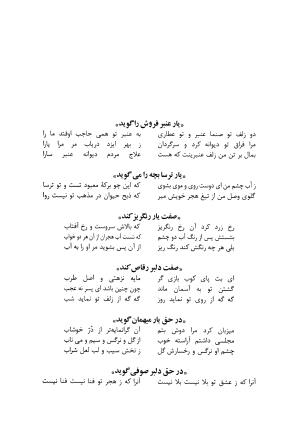 *یار عنبر فروش را گوید*
دو زلف تو صنما عنبر و تو عطاری به عنبر تو همی حاجب اوفتد ما را
مرا فراق تو دیوانه کرد و سرگردان ز بهر ایزد دریاب مر مرا یارا
بمال بر تن من زلف عنبرینت که هست علاج مردم دیوانه عنبر سارا
*یار ترسا بچه را می گوید*
ز آب چشم من ای دوست روی و موی بشوی که این چو برکهٔ معبود تست و تو ترسا
گلوی وصل من از تیغ هجر خویش مبر که ذبح حیوان در مذهب تو نیست روا
*صفت یار رنگریز کند*
رخ زرد کرد آن رخ رنگریز که بالاش سروست و رخ آفتاب
بشستش پس از رنگ آب دو چشم که شست آب هجران از آن هر دو خواب
بلی هر چه رنگش کند رنگ ریز از آن پس بشوید مر او را به آب
*صفت دلبر رقاص کند*
ای بت پای کوب بازی گر مایه نزهتی و اصل طرب
گشتن تو به آسمان ماند چون چنین باشد ای پسر نه عجب
گه گه از روی تو نماید روز گه گه از زلف تو نماید شب
*در حق یار میهمان گوید*
میزبان کرد مرا دوش بتم آن گرانمایه‌تر از دُرّ خوشاب
مجلسی داشتم آراسته خوب از گل و نرگس و سیم و می ناب
چشم او نرگس و رخسارش گل ز نخش سیب و لب لعل شراب
*در حق دلبر صوفی گوید*
آنرا که ز عشق تو بلا نیست بلا نیست آنرا که ز هجر تو فنا نیست فنا نیست